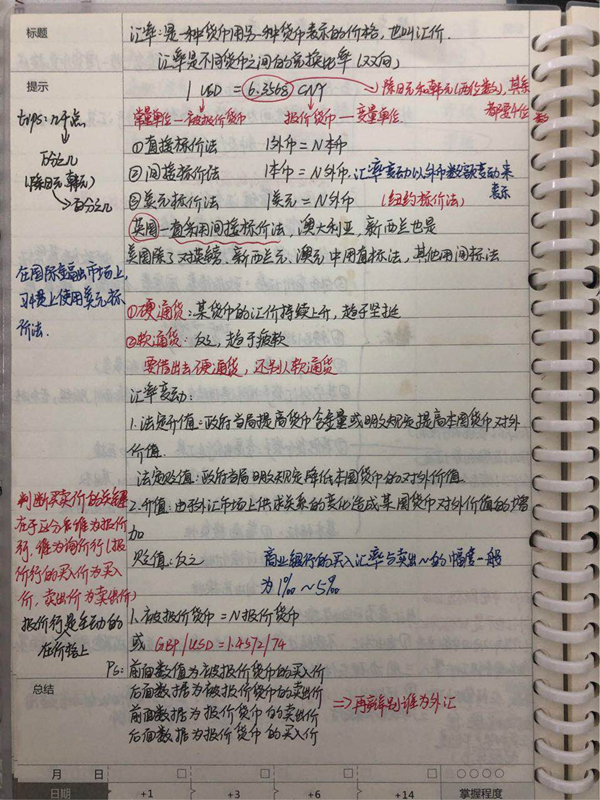 标题
汇率:是一种货币用另一种货币表示的价格,也叫汇价.
汇率是不同货币之间的兑换比率(双向)
提示
1 USD = 6.3568 CNY
除日元和韩元(两位数),其余
都要4位
常量单位—被报价货币
报价货币—变量单位.
tips:几个点
↓
万分之几
(除日元,韩元)
→百分之几
①直接标价法 1外币=N本币
②间接标价法 1本币=N外币.汇率变动以外币数额变动来
表示
③美元标价法 1美元=N外币 (纽约标价法)
英国一直采用间接标价法,澳大利亚,新西兰也是
美国除了对英镑、新西兰元、澳元中用直标法,其他用间标法
在国际金融市场上,
习惯上使用美元标
价法.
①硬通货:某货币的汇价持续上升,趋于坚挺
②软通货:反之,趋于疲软
要借出去硬通货,还别人软通货
汇率变动:
1.法定升值:政府当局提高货币含金量或明文规定提高本国货币对外
价值.
法定贬值:政府当局明文规定降低本国货币的对外价值.
2.升值:由于外汇市场上供求关系的变化造成某国货币对外价值的增
加
贬值:反之
商业银行的买入汇率与卖出~的幅度一般
为1‰~5‰
判断买卖价的关键
在于区分清谁为报价
行,谁为询价行(报
价行的买入价为买入
价,卖出价为卖出价)
报价行是主动的
在价格上
1.被报价货币=N报价货币
或 GBP/USD=1.4572/74
Ps:前面数值为被报价货币的买入价
后面数据为被报价货币的卖出价
前面数据为报价货币的卖出价
后面数据为报价货币的买入价
⇒再辩别谁为外汇
总结
月 日 □ □ □ □ ○○○○
日期 +1 +3 +6 +14 掌握程度